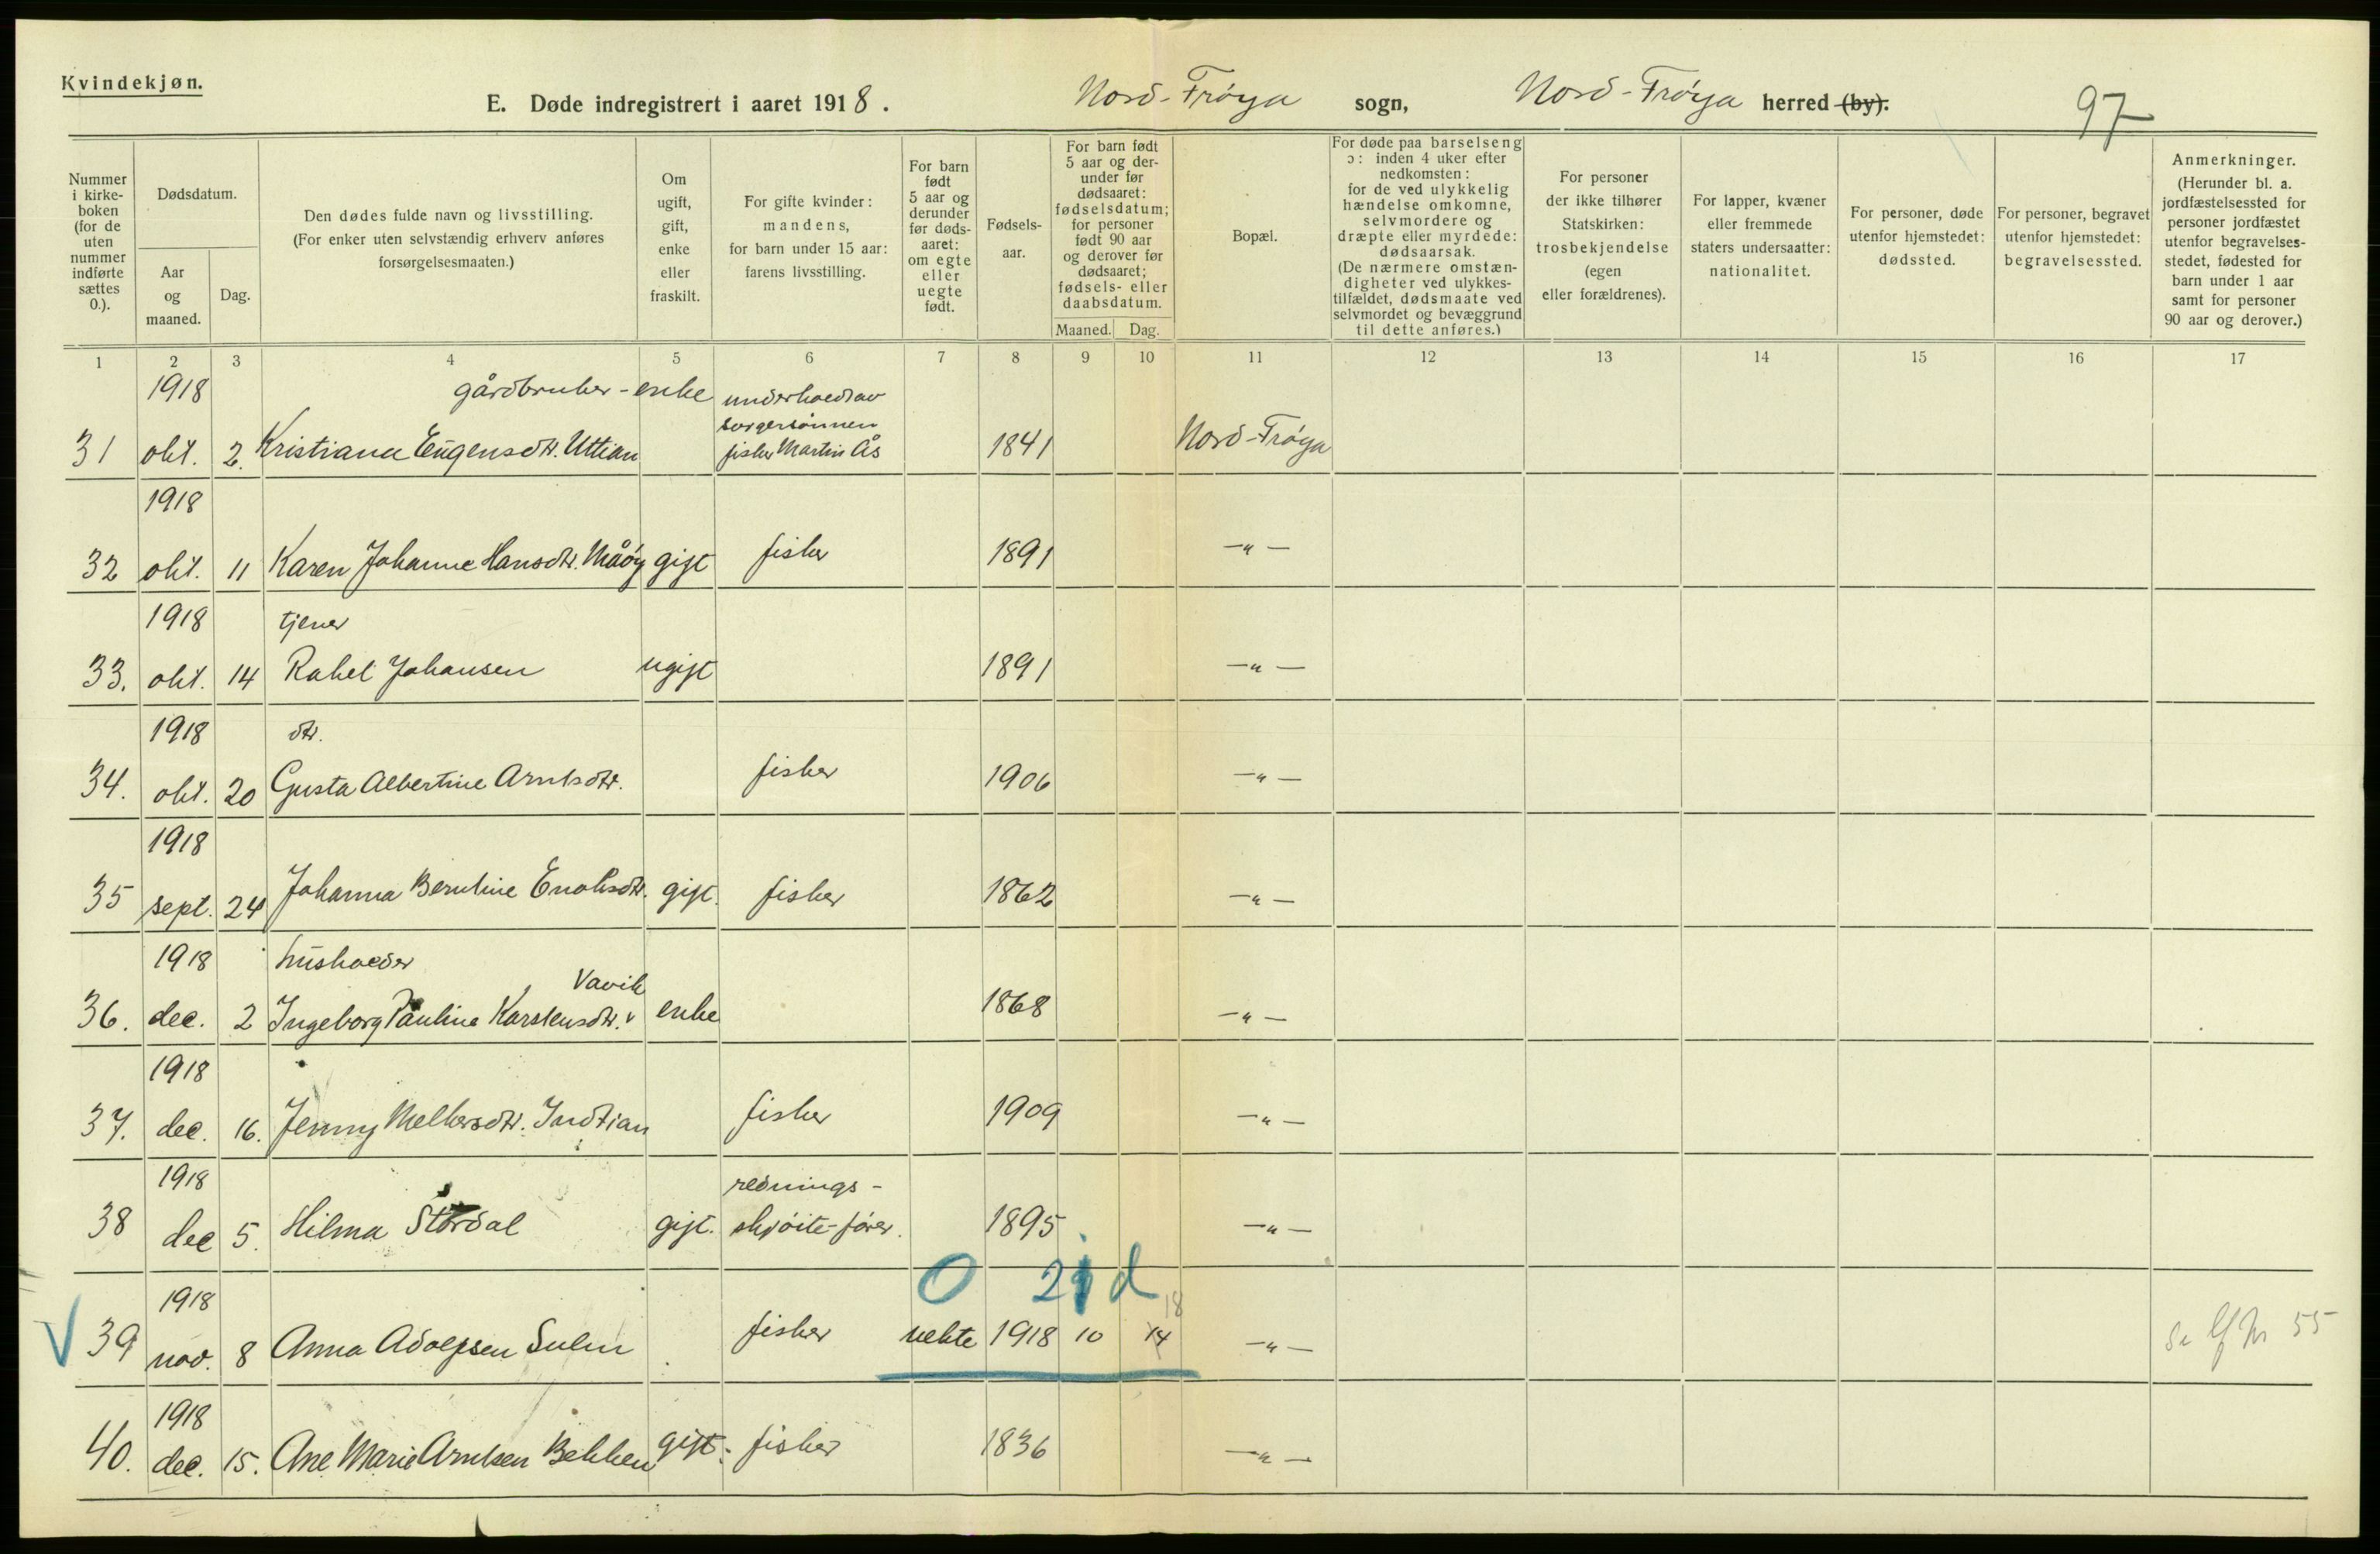 Kvindekjøn.
E. Døde indregistrert i aaret 1918. Nord-Frøya sogn, Nord-Frøya herred (by).
97
Nummer i kirkeboken (for de uten nummer indførte sættes 0.).
Dødsdatum.
Aar og maaned.
Dag.
Den dødes fulde navn og livsstilling.
(For enker uten selvstændig erhverv anføres forsørgelsesmaaten.)
Om ugift, gift, enke eller fraskilt.
For gifte kvinder: mandens, for barn under 15 aar: farens livsstilling.
For barn født 5 aar og derunder før dødsaaret: om egte eller uegte født.
Fødselsaar.
For barn født 5 aar og derunder før dødsaaret: fødselsdatum; for personer født 90 aar og derover før dødsaaret; fødsels- eller daabsdatum.
Maaned. Dag.
Bopæl.
For døde paa barselseng ɔ: inden 4 uker efter nedkomsten: for de ved ulykkelig hændelse omkomne, selvmordere og dræpte eller myrdede: dødsaarsak. (De nærmere omstændigheter ved ulykkestilfældet, dødsmaate ved selvmordet og bevæggrund til dette anføres.)
For personer der ikke tilhører Statskirken: trosbekjendelse (egen eller forældrenes).
For lapper, kvæner eller fremmede staters undersaatter: nationalitet.
For personer, døde utenfor hjemstedet: dødssted.
For personer, begravet utenfor hjemstedet: begravelsessted.
Anmerkninger. (Herunder bl. a. jordfæstelsessted for personer jordfæstet utenfor begravelsesstedet, fødested for barn under 1 aar samt for personer 90 aar og derover.)
1 2 3 4 5 6 7 8 9 10 11 12 13 14 15 16 17
1918 gårdbruker-enke underholdt av
sorgersønnen
31 okt. 2. Kristiana Eugensdtr. Uttian fisker Martin Ås 1841 Nord-Frøya
1918
32 okt. 11 Karen Johanne Hansdtr. Måøy gift fisker 1891 -"-
1918 tjener
33. okt. 14 Rakel Johansen ugift 1891 -"-
1918 dtr.
34. okt. 20 Gusta Albertine Arntsdtr. fisker 1906 -"-
1918
35 sept. 24 Johanna Berntine Enoksdtr. gift. fisker 1862 -"-
1918 husholder
Vavik
36. dec. 2 Ingeborg Pauline Karstensdtr. v enke 1868 -"-
1918
37. dec. 16. Jenny Melkersdtr. Indtian fisker 1909 -"-
1918 rednings-
38 dec 5. Hilma Stordal gift. skjøite-fører. 1895 -"-
0 21 d
1918 18
V 39 nov. 8 Anna Adolfsen Sulen fisker uekte 1918 10 14 -"- 55
1918
40. dec. 15. Ane Marie Arntsen Bekken gift. fisker 1836 -"-